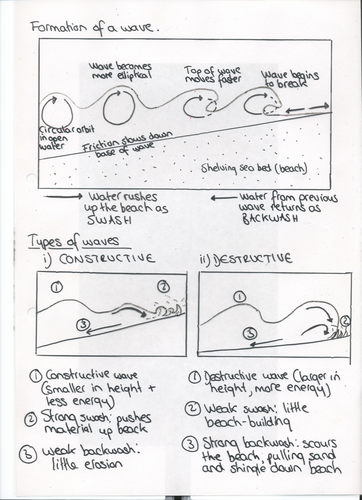 Formation of a wave.
Wave becomes
more elliptical
Top of wave
moves faster
Wave begins
to break
Circular orbit
in open
water
Friction slows down
base of wave
Shelving sea bed (beach)
Water rushes
up the beach as
SWASH
Water from previous
wave returns as
BACKWASH
Types of waves
i) CONSTRUCTIVE
ii) DESTRUCTIVE
1
2
3
1
2
3
1 Constructive wave
(smaller in height +
less energy)
2 Strong swash: pushes
material up beach
3 Weak backwash:
little erosion
1 Destructive wave (larger in
height, more energy)
2 Weak swash: little
beach-building
3 Strong backwash: scours
the beach, pulling sand
and shingle down beach